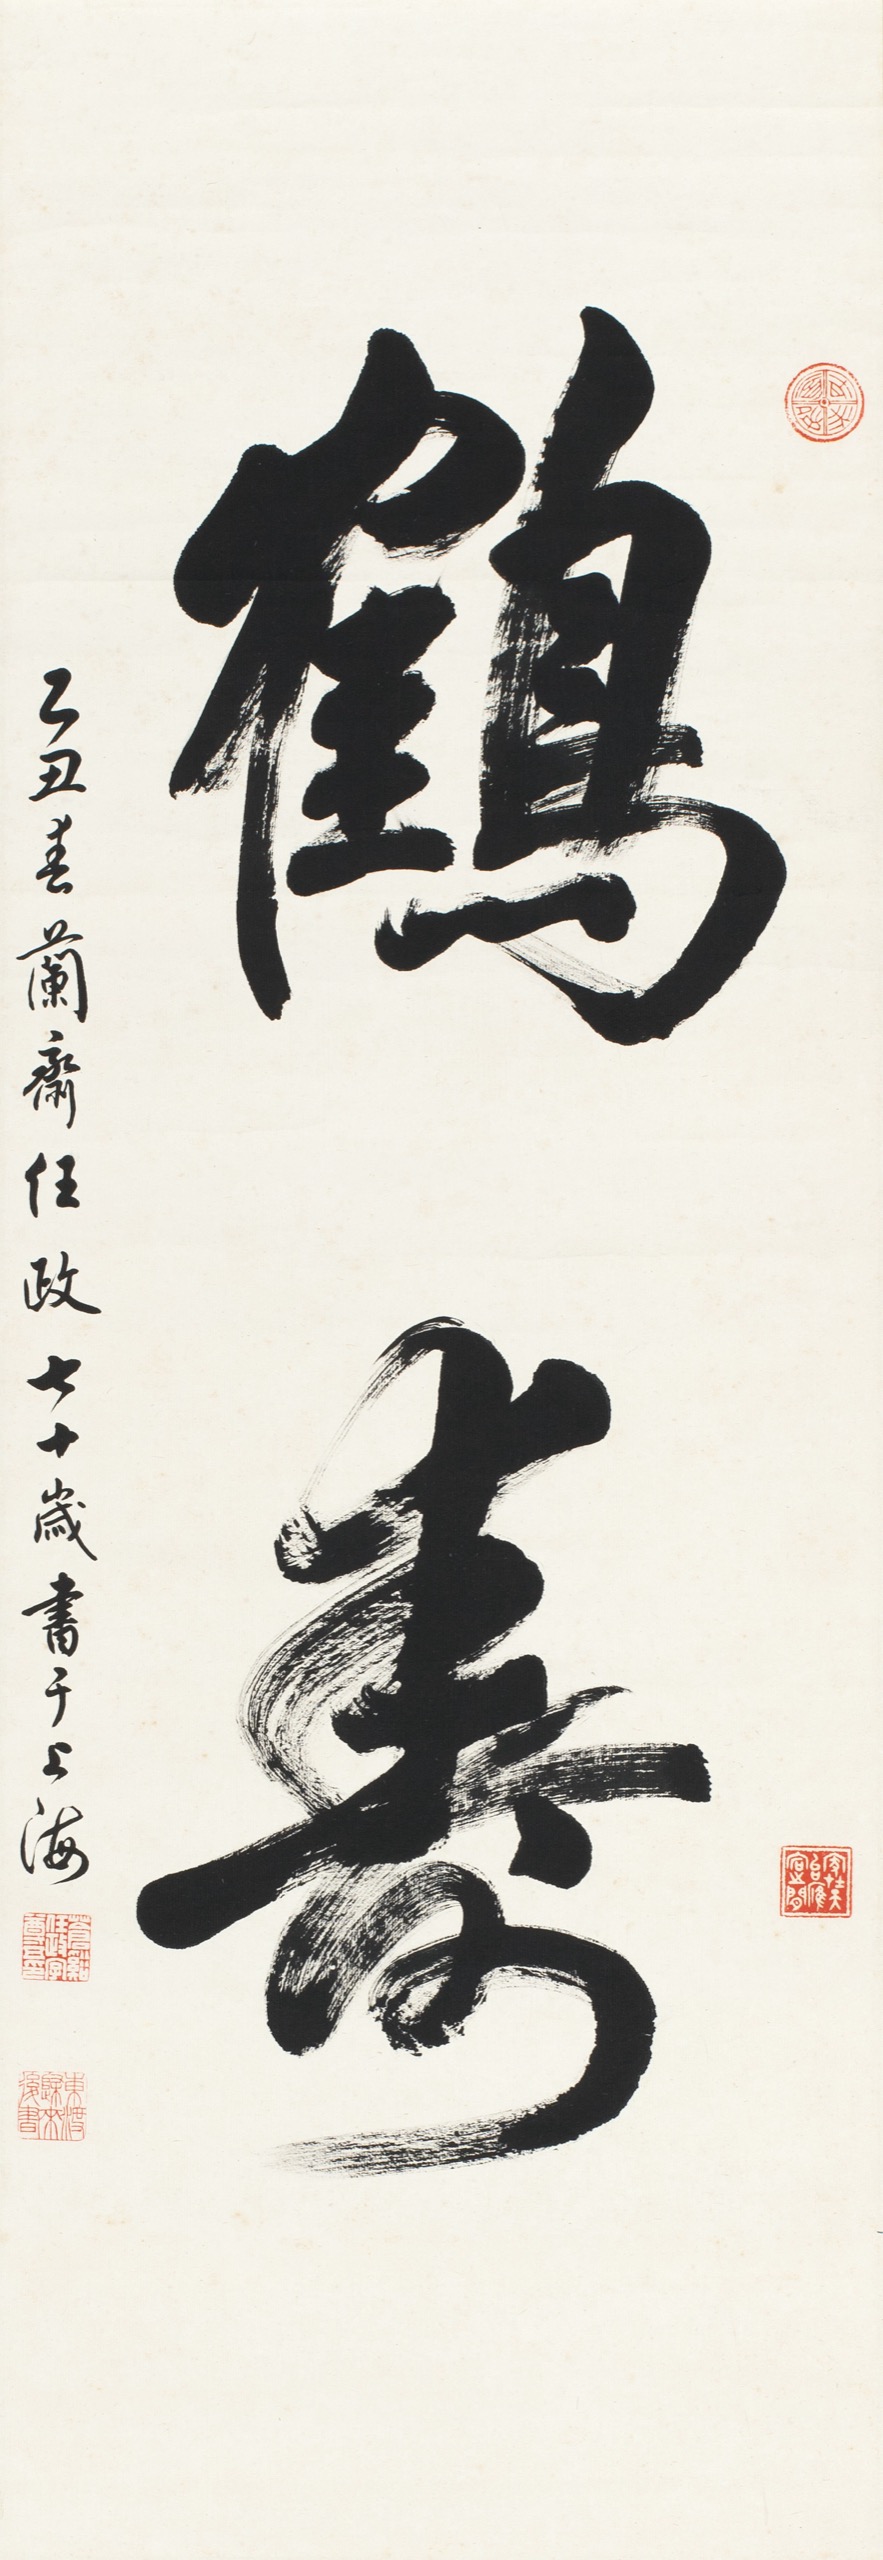 鶴壽
乙丑春蘭齋任政七十歲書于上海